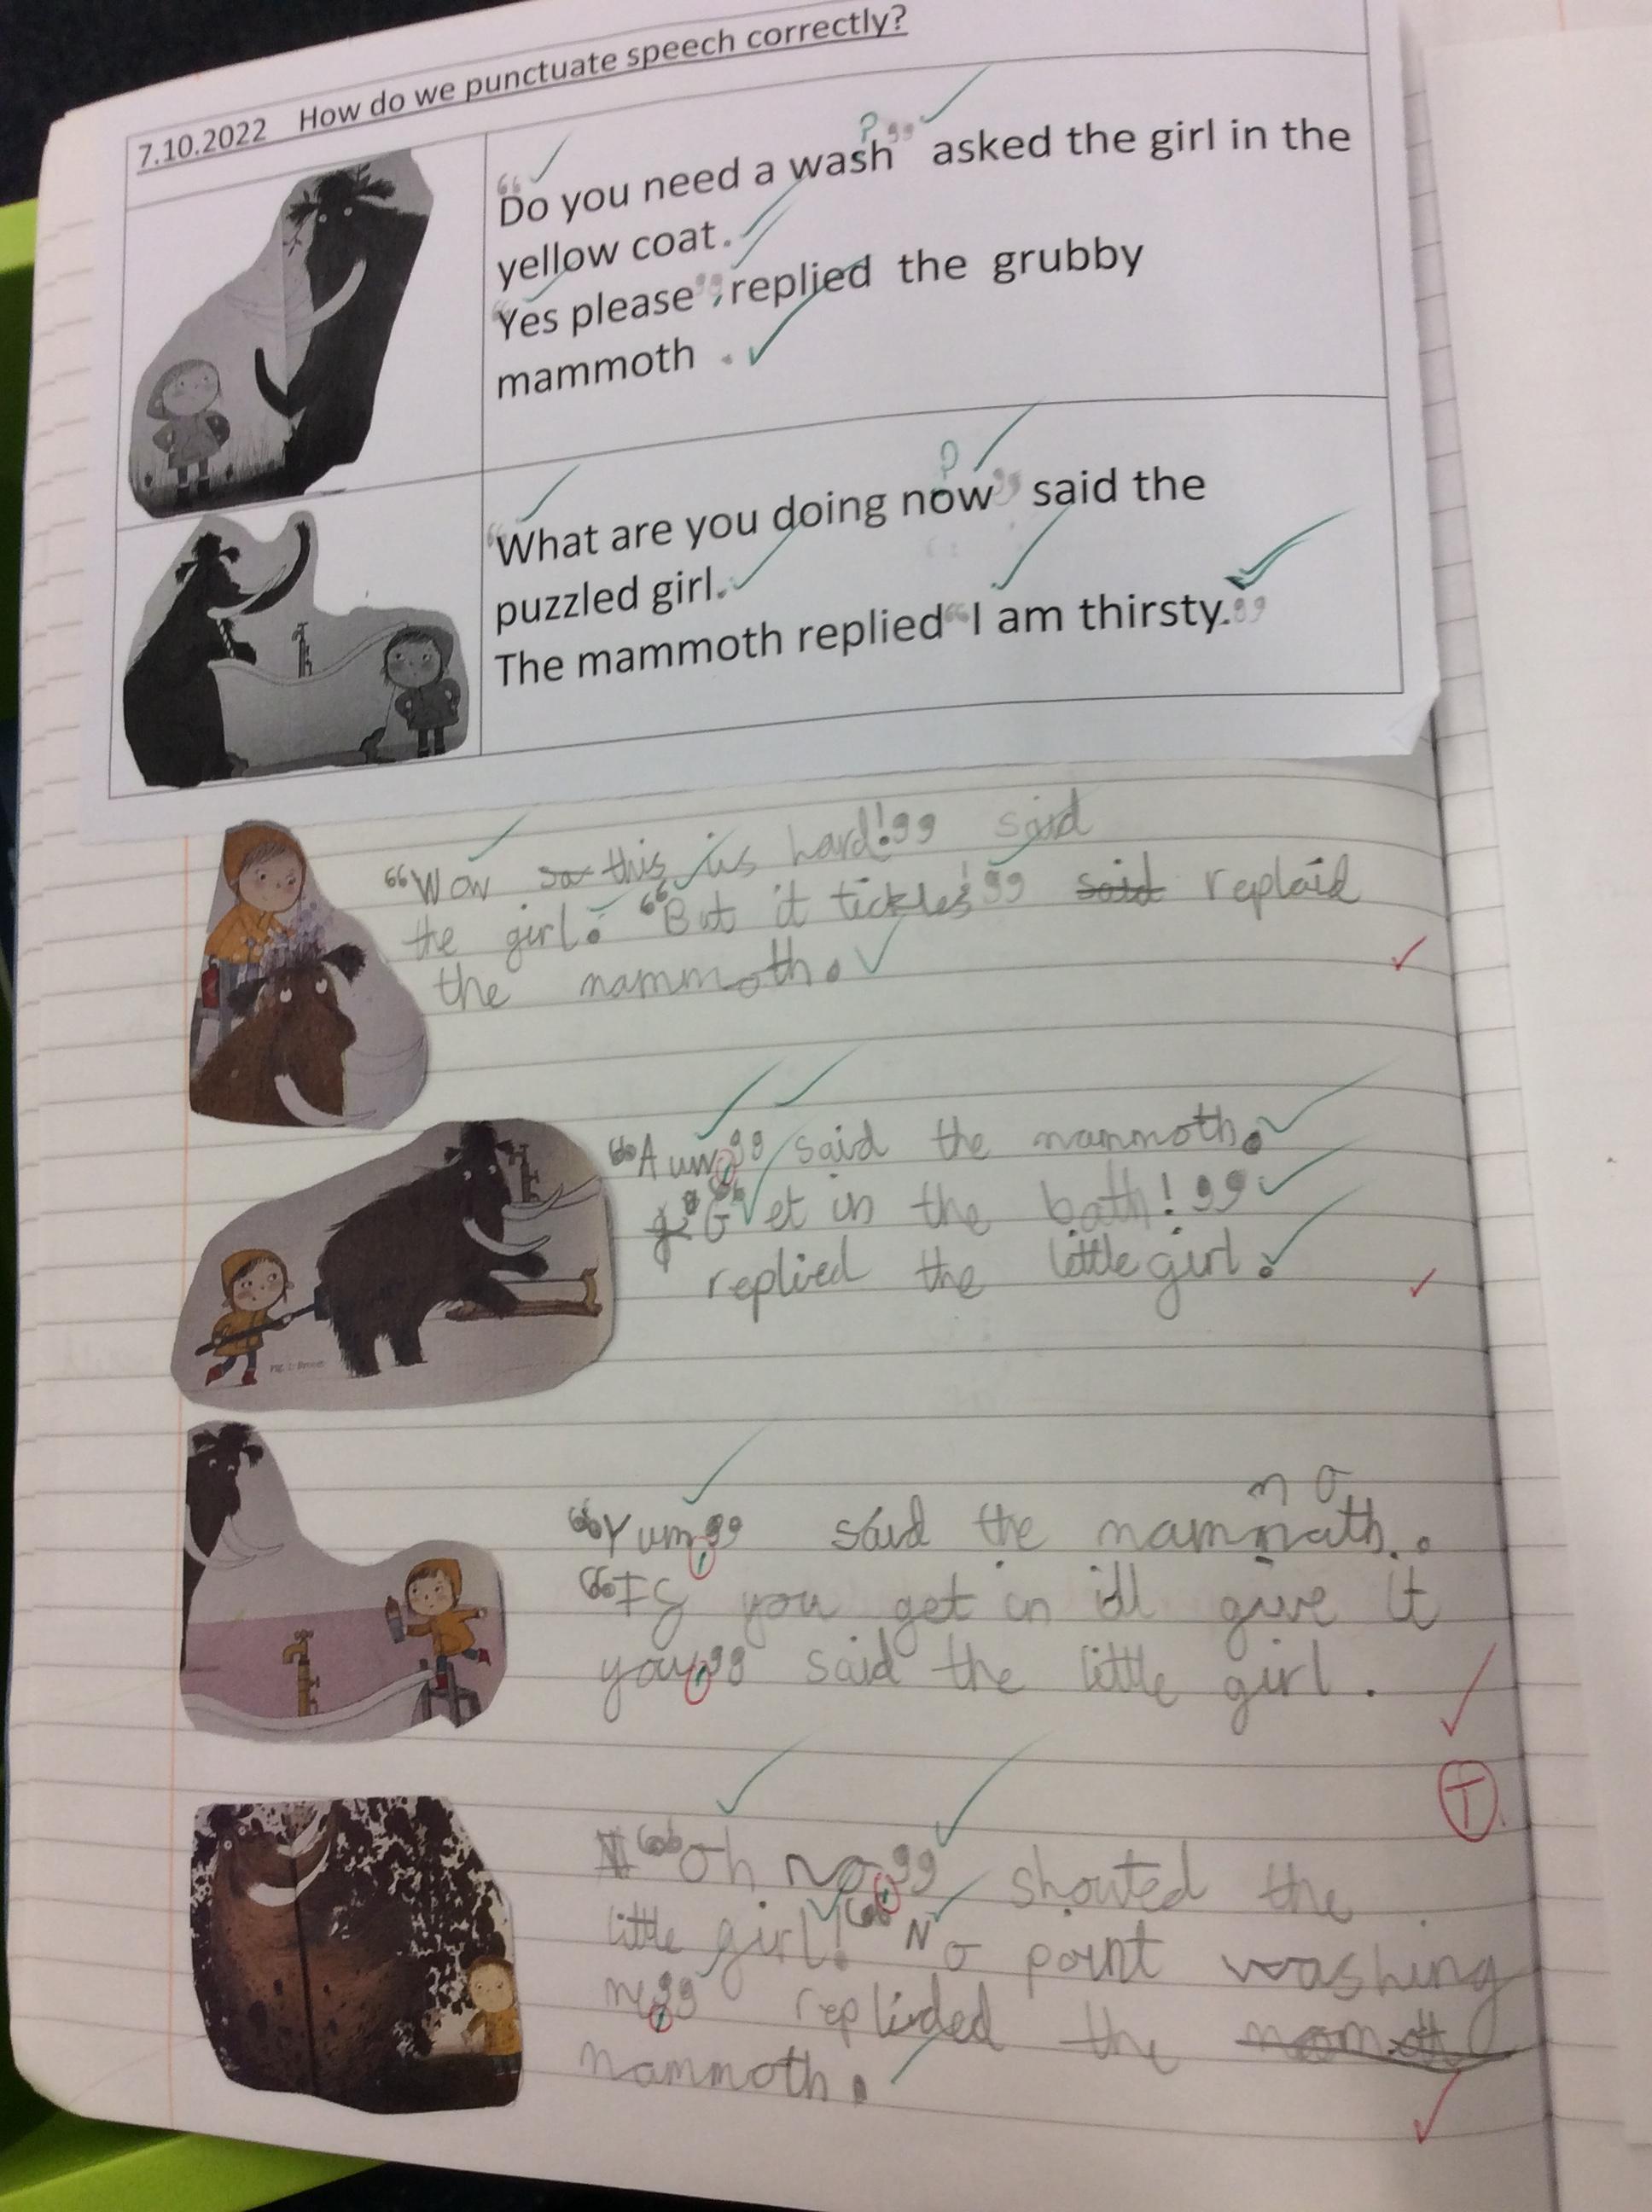 7.10.2022 How do we punctuate speech correctly?
“Do you need a wash?” asked the girl in the
yellow coat.
“Yes please”, replied the grubby
mammoth .
“What are you doing now?” said the
puzzled girl.
The mammoth replied “I am thirsty.”
“Wow so this is hard!” said
the girl. “But it tickles!” said replaid
the mammoth.
“Auw,” said the mammoth.
g “Get in the bath!”
replied the little girl.
“Yum,” said the mammoth.
“If you get in ill give it
you,” said the little girl.
T
N “Oh no,” shouted the
little girl! “No point washing
me,” replieded the
mammoth.